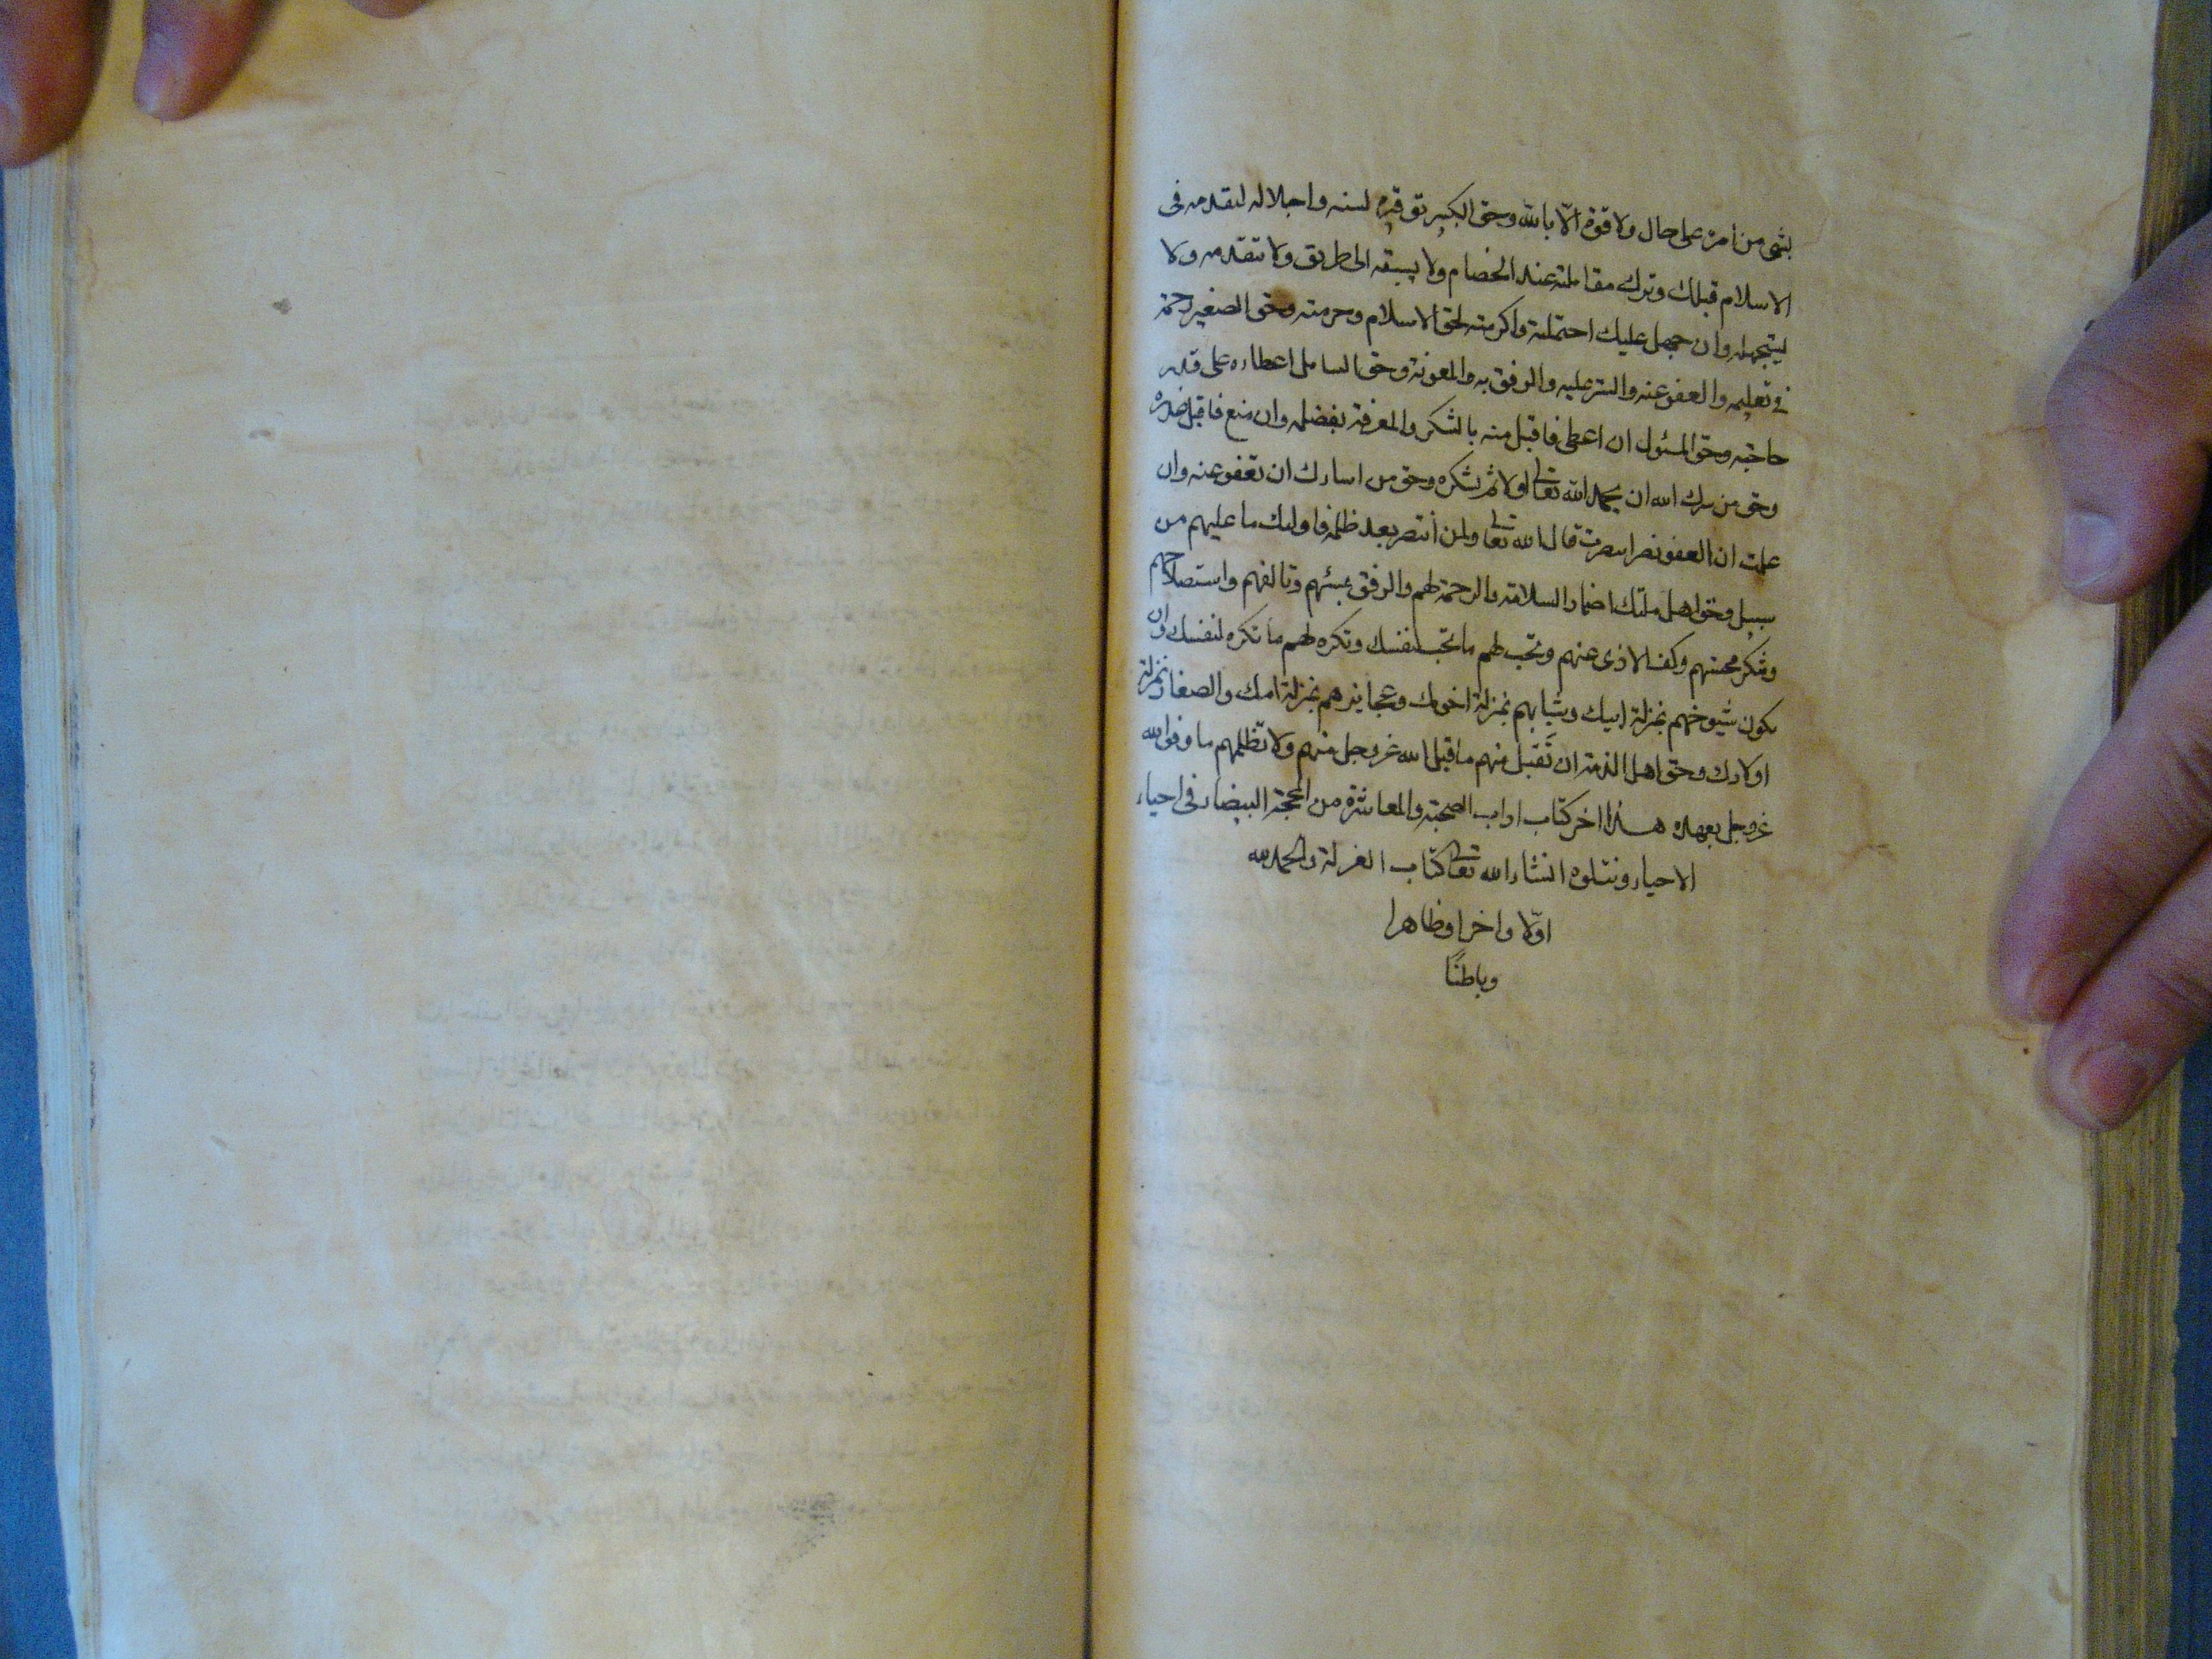 بشئ من امره على حال ولا قوة الّا بالله وحق الكبير توقيره لسنه واجلاله لتقدمه فى
الاسلام قبلك وترك مقابلته عند الخصام ولا يسبقه الى طريق ولا تتقدمه ولا
يستجهله وان جهل عليك احتملته واكرمته لحق الاسلام وحرمته وحق الصغير رحمته
فى تعليمه والعفو عنه والستر عليه والرفق به والمعونة وحق السائل اعطاءه على قدر
حاجته وحق المسئول ان اعطى فاقبل منه بالشكر والمعرفة بفضله وان منع فاقبل عذره
وحق من سرك الله ان يحمد الله تعالى اولا ثم تشكره وحق من اساءك ان تعفو عنه وان
علمت ان العفو يضر انتصرت قال الله تعالى ولمن انتصر بعد ظلمه فاولئك ما عليهم من
سبيل وحق اهل ملتك اضمار السلامة والرحمة لهم والرفق بمسيئهم وتالفهم واستصلاحهم
وشكر محسنهم وكف الاذى عنهم وتحب لهم ما تحب لنفسك وتكره لهم ما تكره لنفسك وان
يكون شيوخهم بمنزلة ابيك وشبابهم بمنزلة اخوتك وعجايزهم بمنزلة امك والصغار بمنزلة
اولادك وحق اهل الذمة ان تقبل منهم ما قبل الله عز وجل منهم ولا تظلمهم ما وفوا لله
عز وجل بعهده هذا اخر كتاب اداب الصحبة والمعاشرة من المحجة البيضاء فى احياء
الاحياء ونتلوه انشاء الله تعالى كتاب العزلة والحمد لله
اوّلا واخرا وظاهرا
وباطنًا